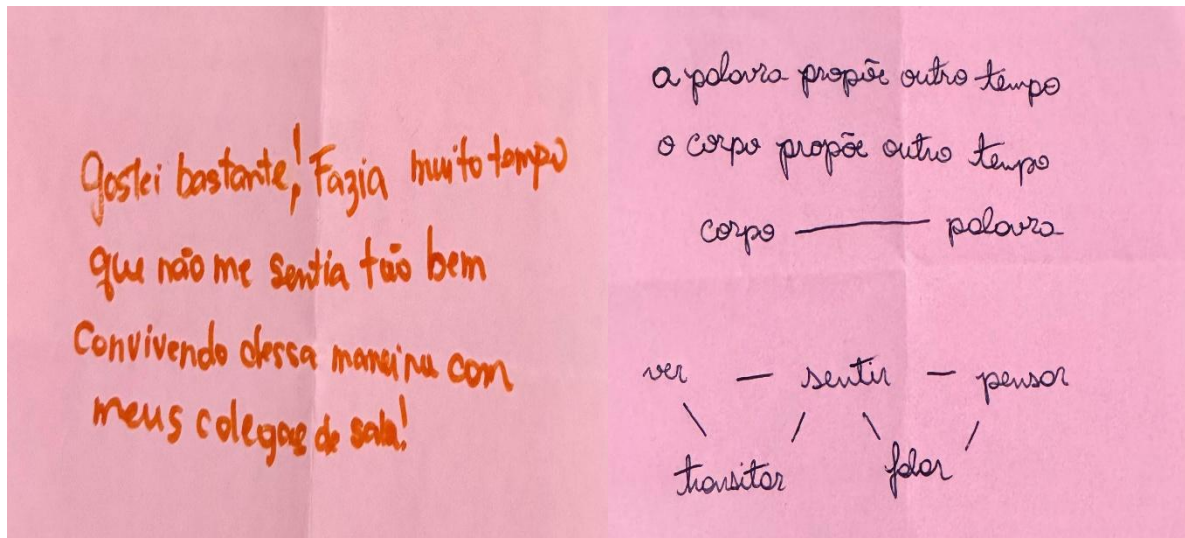 Gostei bastante! Fazia muito tempo
que não me sentia tão bem
Convivendo dessa maneira com
meus colegas de sala!
a palavra propõe outro tempo
o corpo propõe outro tempo
corpo — palavra
ver — sentir — pensar
transitar falar